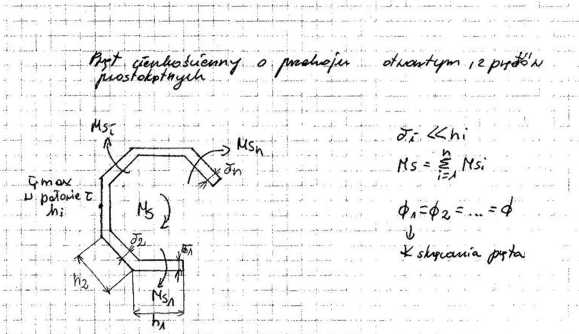 Pręt cienkościenny o przekroju otwartym, z prętów
prostokątnych
Msi
Msn
δn
τmax
w połowie
hi
Ms
δ2
δ1
h2
Ms1
h1
δi << hi
Ms = Σ Msi
n
i=1
ϕ1 = ϕ2 = ... = ϕ
↓
∢ skręcania pręta